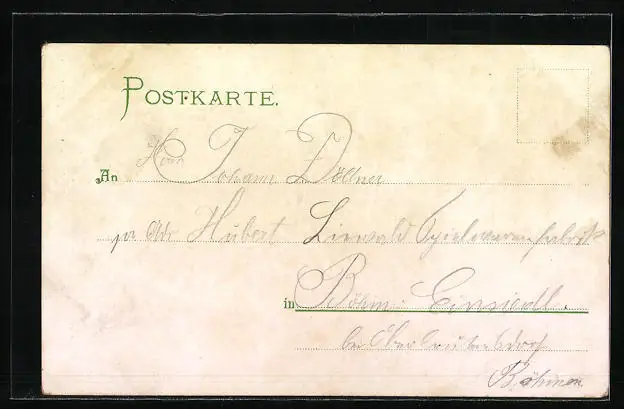 POSTKARTE.
An Herrn Johann Döllner
pr Adr Hubert Liewald Spielwarenfabrik
in Böhm. Einsiedl.
bei Oberleutensdorf
Böhmen